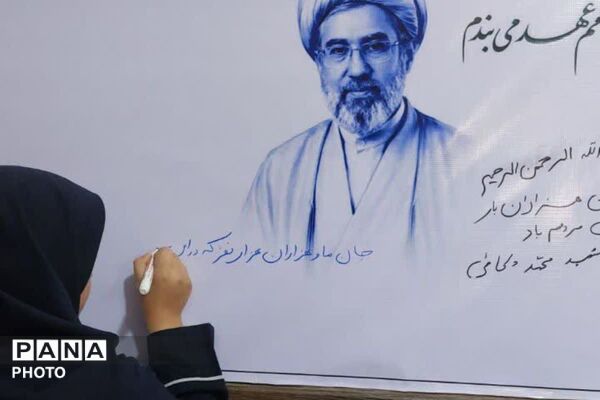 عهد می بندم
الله الرحمن الرحیم
هزاران بار
مردم باد
محمد
جان ما و هزاران هزار نفر که در
PANA
PHOTO